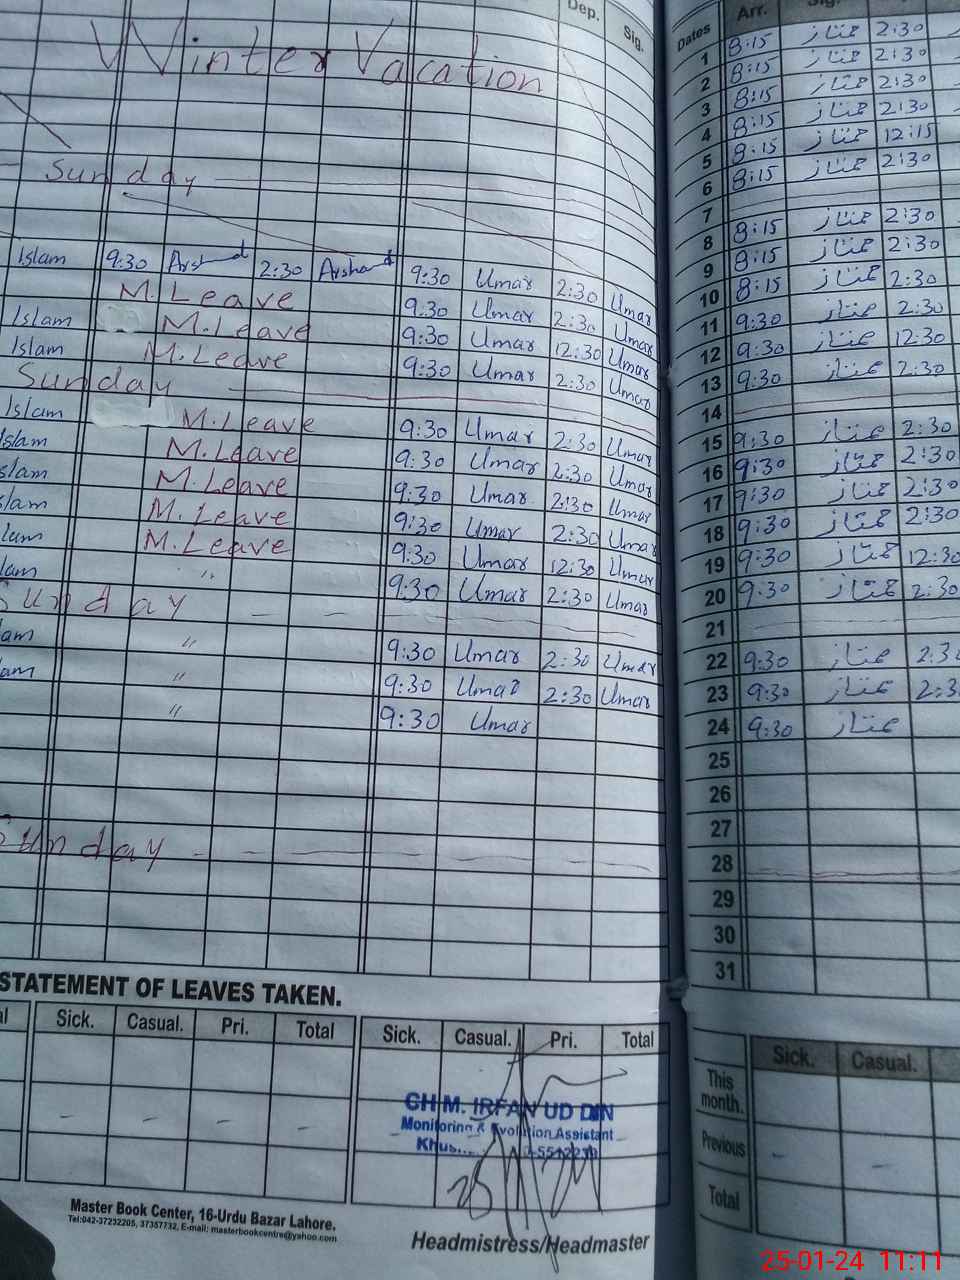 Dep.
Sig.
Winter Vacation
Sunday
Islam 9:30 Arshad 2:30 Arshad 9:30 Umar 2:30 Umar
M. Leave 9:30 Umar 2:30 Umar
Islam M. Leave 9:30 Umar 12:30 Umar
Islam M. Leave 9:30 Umar 2:30 Umar
Sunday
Islam M. Leave 9:30 Umar 2:30 Umar
Islam M. Leave 9:30 Umar 2:30 Umar
slam M. Leave 9:30 Umar 2:30 Umar
slam M. Leave 9:30 Umar 2:30 Umar
lam M. Leave 9:30 Umar 12:30 Umar
lam " 9:30 Umar 2:30 Umar
Sunday
lam " 9:30 Umar 2:30 Umar
lam " 9:30 Umar 2:30 Umar
" 9:30 Umar
Sunday
STATEMENT OF LEAVES TAKEN.
Sick. Casual. Pri. Total Sick. Casual. Pri. Total
CH M. IRFAN UD DIN
Monitoring & Evolution Assistant
Master Book Center, 16-Urdu Bazar Lahore.
Tel:042-37232205, 37357732, E-mail: masterbookcentre@yahoo.com
Headmistress/Headmaster
Dates Arr. Sig.
1 8:15 ممتاز 2:30
2 8:15 ممتاز 2:30
3 8:15 ممتاز 2:30
4 8:15 ممتاز 2:30
5 8:15 ممتاز 12:15
6 8:15 ممتاز 2:30
7
8 8:15 ممتاز 2:30
9 8:15 ممتاز 2:30
10 8:15 ممتاز 2:30
11 9:30 ممتاز 2:30
12 9:30 ممتاز 12:30
13 9:30 ممتاز 2:30
14
15 9:30 ممتاز 2:30
16 9:30 ممتاز 2:30
17 9:30 ممتاز 2:30
18 9:30 ممتاز 2:30
19 9:30 ممتاز 12:30
20 9:30 ممتاز 2:30
21
22 9:30 ممتاز 2:3
23 9:30 ممتاز 2:3
24 9:30 ممتاز
25
26
27
28
29
30
31
Sick. Casual.
This month.
Previous
Total
25-01-24 11:11